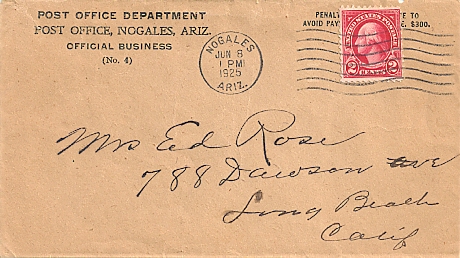 POST OFFICE DEPARTMENT
POST OFFICE, NOGALES, ARIZ.
OFFICIAL BUSINESS
(No. 4)
NOGALES
JUN 8
1 PM
1925
ARIZ.
PENAL TE TO
AVOID PAY E, $300.
UNITED STATES POSTAGE
2 2
Mrs Ed Rose
788 Dawson ave
Long Beach
Calif